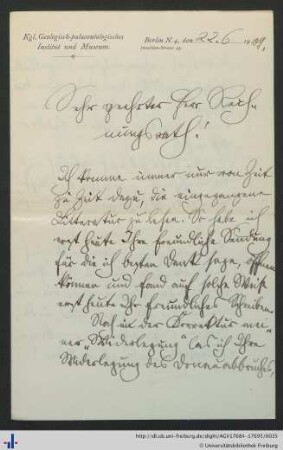 Kgl. Geologisch-palaeontologisches
Institut und Museum.
Berlin N. 4, den 22. 6. 1909.
Invaliden-Strasse 43.
Sehr geehrter Herr Rech-
nungsrath!
Ich komme immer nur von Zeit
zu Zeit dazu, die eingegangene
Litteratur zu lesen. So habe ich
erst heute Ihre freundliche Sendung
für die ich besten Dank sage, öffnen
können und fand auf solche Weise
erst heute Ihr freundliches Schreiben.
Noch in der Korrektur mei-
ner „Widerlegung" las ich Ihre
Widerlegung des
http://dl.ub.uni-freiburg.de/diglit/
Universitätsbibliothek Freiburg